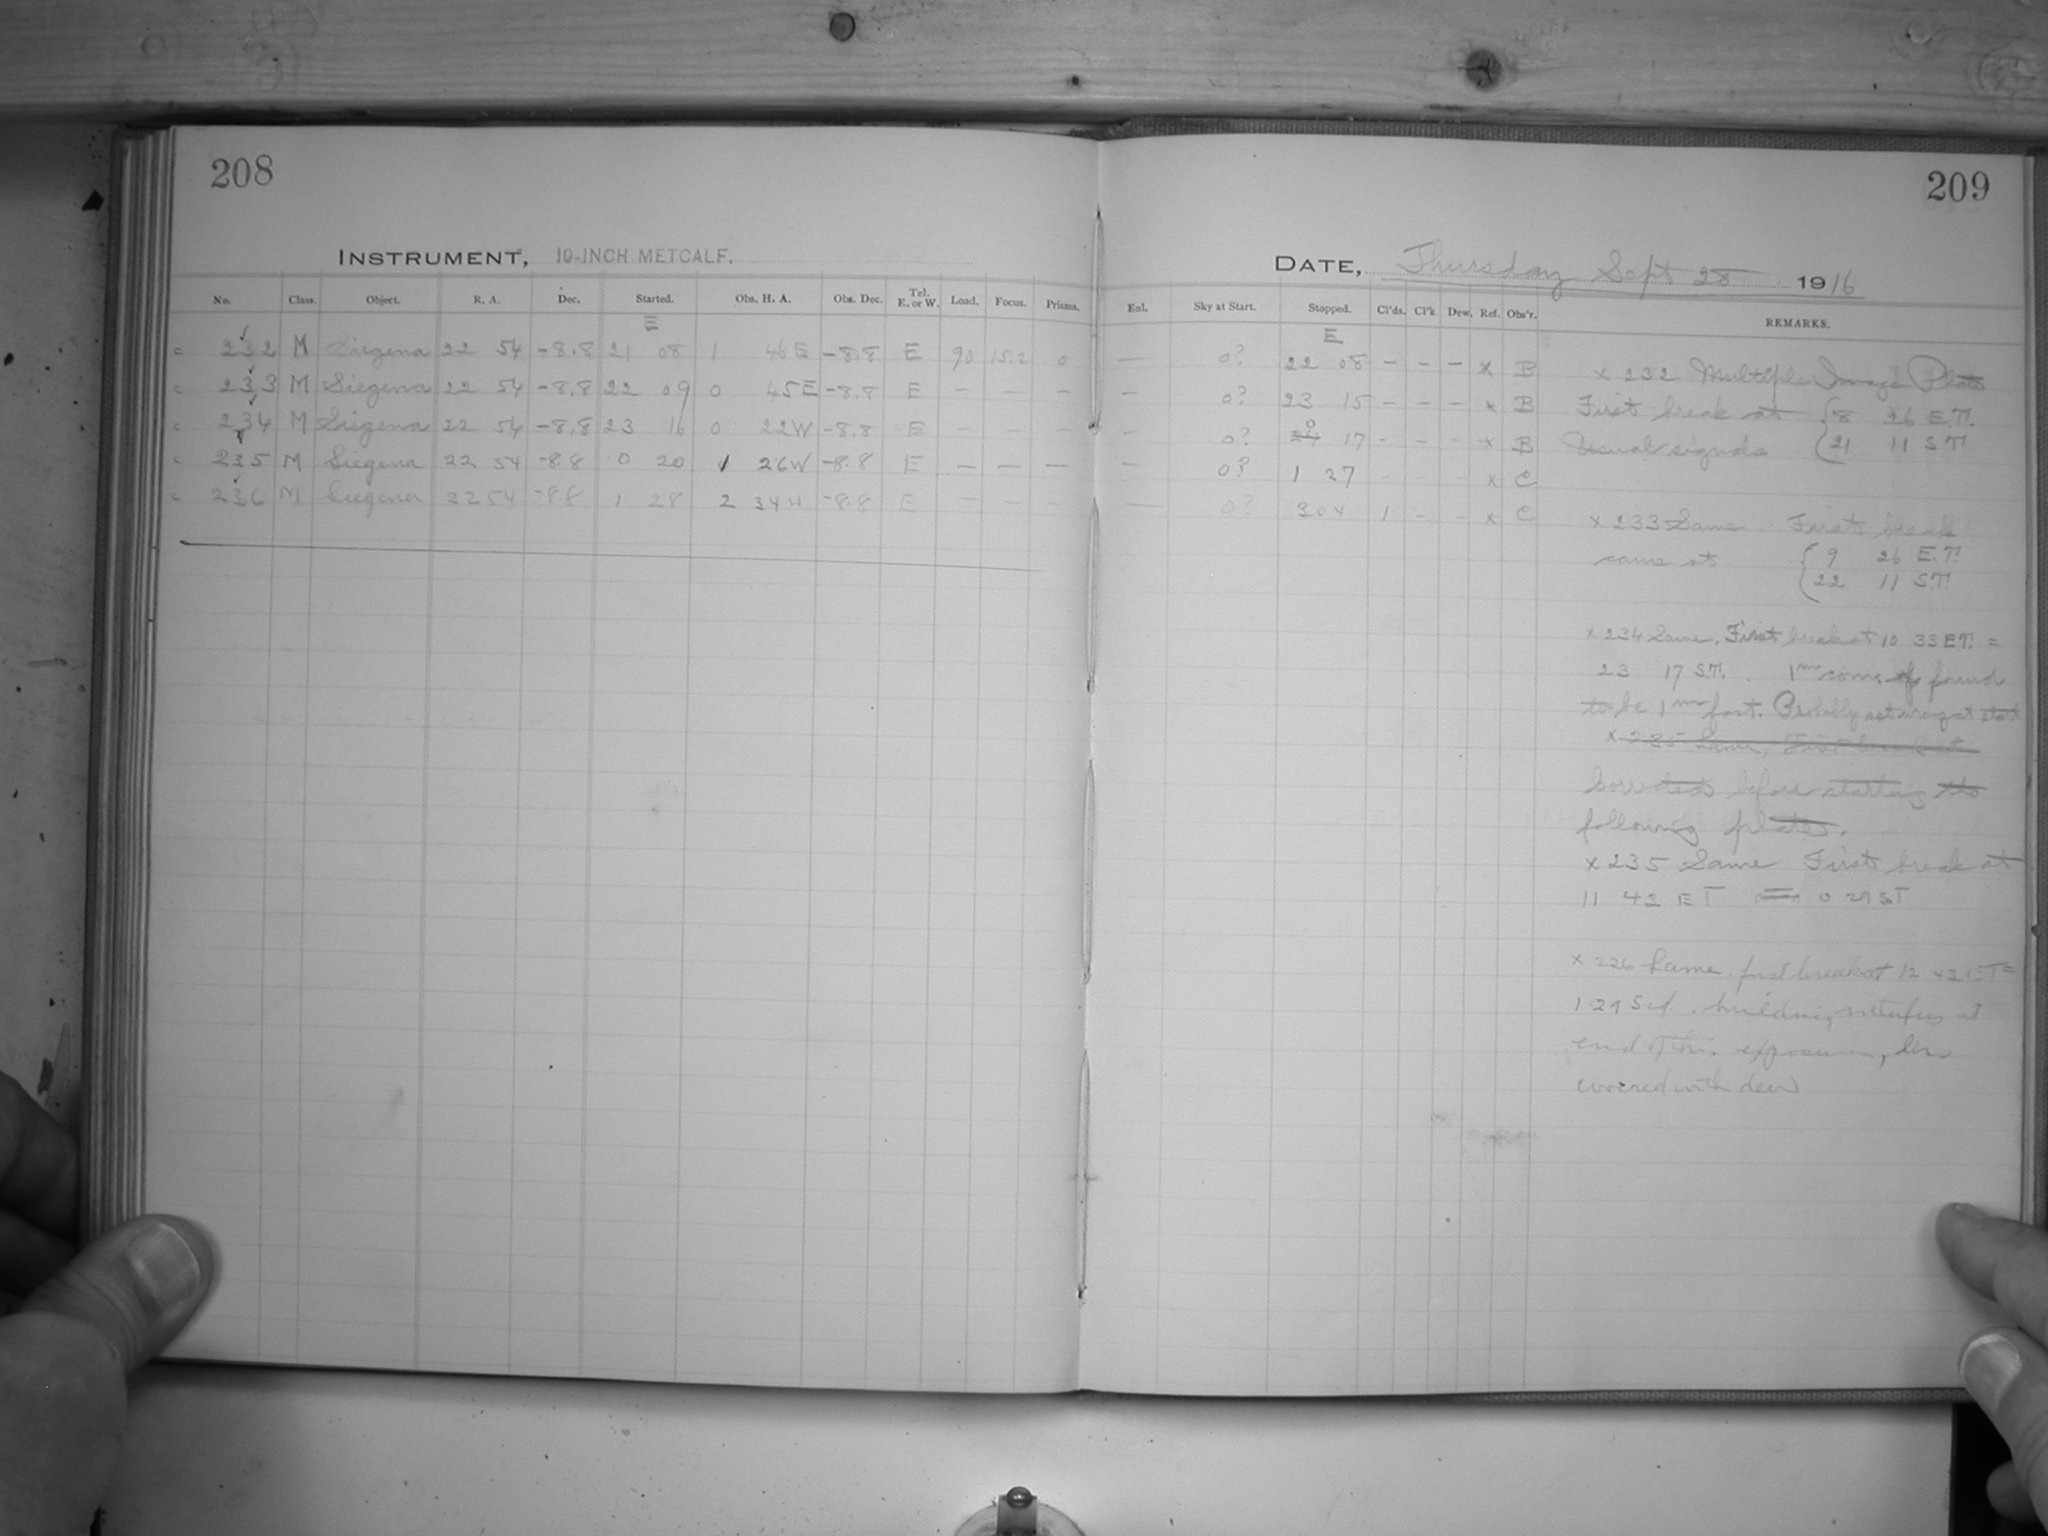 208
209
INSTRUMENT, 10-INCH METCALF.
DATE, Thursday Sept 28 1916
No. Class. Object. R. A. Dec. Started. Obs. H. A. Obs. Dec. Tel. E. or W. Load. Focus. Prisms. Enl. Sky at Start. Stopped. Cl'ds. Cl'k Dew. Ref. Obs'r. REMARKS.
E E
232 M Siegena 22 54 -8.8 21 08 1 46E -8.8 E 90 15.2 0 — 0? 22 08 - - - x B
233 M Siegena 22 54 -8.8 22 09 0 45E -8.8 E — — — — 0? 23 15 - - - x B
234 M Siegena 22 54 -8.8 23 16 0 22W -8.8 E — — — — 0? 0 17 - - - x B
235 M Siegena 22 54 -8.8 0 20 1 26W -8.8 E — — — — 0? 1 27 - - - x C
236 M Siegena 22 54 -8.8 1 28 2 34W -8.8 E — — — — 0? 3 04 1 - - x C
x 232 Multiple Image Plate
First break at { 8 26 E.T.
Usual signals { 21 11 S.T.
x 233 Same First break
came at { 9 26 E.T.
{ 22 11 S.T.
x 234 Same. First break at 10 33 E.T. =
23 17 S.T. 1m found
to be 1m fast. Probably set wrong at start
x 235 Same, First break at
Corrected before starting the
following plate.
x 235 Same First break at
11 43 ET = 0 29 ST
x 236 Same first break at 12 43 ET =
1 29 Sid. building at
end of this exposure, lens
covered with dew